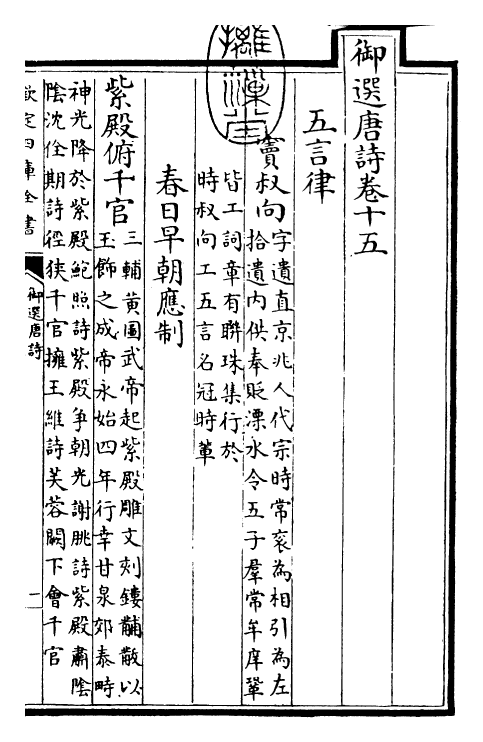 御選唐詩卷十五
五言律
竇叔向字遺直京兆人代宗時常衮為相引為左
拾遺内供奉貶溧水令五子羣常牟庠鞏
皆工詞章有聯珠集行於
時叔向工五言名冠時軰
春日早朝應制
紫殿俯千官三輔黄圖武帝起紫殿雕文刻鏤黼黻以
玉飾之成帝永始四年行幸甘泉郊泰畤
神光降於紫殿鮑照詩紫殿争朝光謝朓詩紫殿肅陰
陰沈佺期詩徑狹千官擁王維詩芙蓉闕下會千官
欽定四庫全書
御選唐詩
一